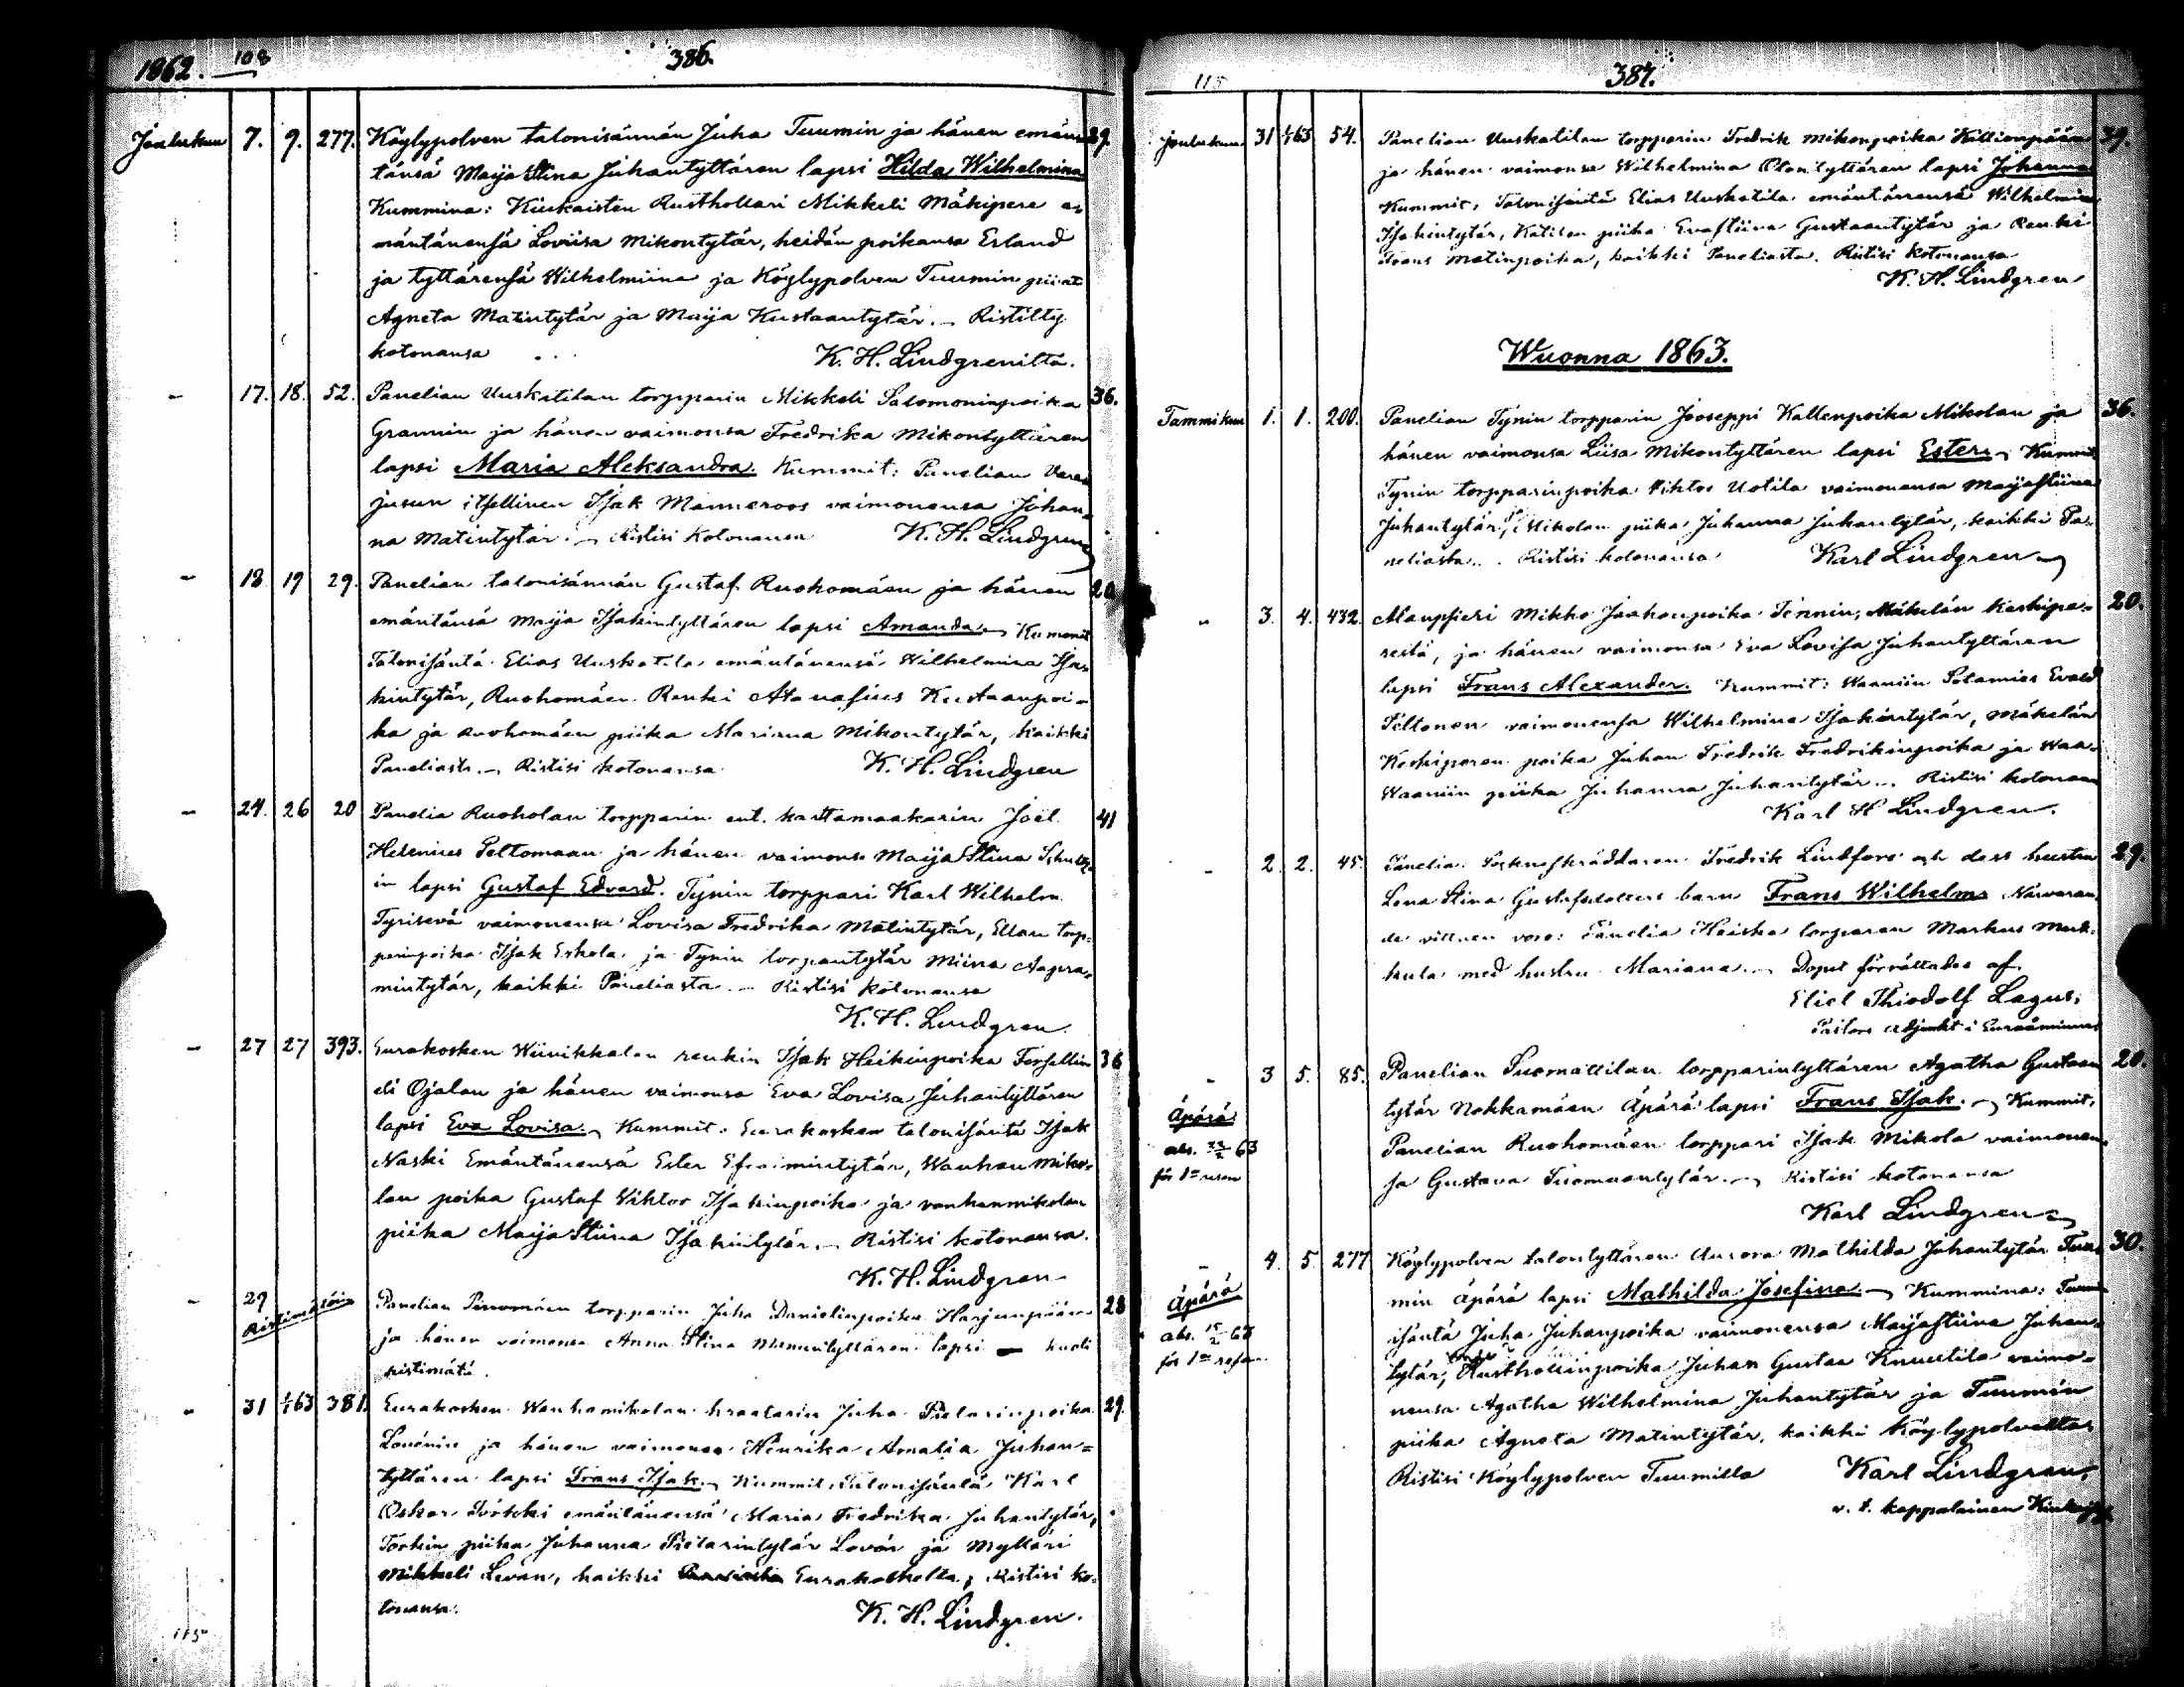 1862. 108 386.
Joulukuu 7. 9. 277. Köylypolven talonisännän Juha Tuumin ja hänen emän= 29.
tänsä Maija Stina Juhantyttären lapsi Hilda Wilhelmina
Kummina: Kiukaisten Rusthollari Mikkeli Mäkipere e=
mäntänensä Loviisa Mikontytär, heidän poikansa Erland
ja tyttärensä Wilhelmiina ja Köylypolven Tuumin piiat
Agneta Matintytär ja Maija Kustaantytär. – Ristitty
kotonansa K. H. Lindgreniltä.
– 17. 18. 52. Panelian Uuskatilan torpparin Mikkeli Salomoninpoika 36.
Grannin ja hänen vaimonsa Fredrika Mikontyttären
lapsi Maria Aleksandra. Kummit: Panelian
jusun itsellinen Isak Manneroos vaimonensa Johan=
na Matintytär. – Ristisi Kotonansa K. H. Lindgren
– 18 19 29. Panelian talonisännän Gustaf Ruohomäen ja hänen 20.
emäntänsä Maija Isakintyttären lapsi Amanda. – Kummit
Talonisäntä Elias Uuskatila emäntänensä Wilhelmina Isa=
kintytär, Ruohomäen Renki Atanasius Kustaanpoi=
ka ja Ruohomäen piika Mariana Mikontytär, kaikki
Paneliasta. – Ristisi kotonansa. K. H. Lindgren
– 24. 26 20 Panelia Ruoholan torpparin ent. karttamaakarin Joël 41
Helenius Peltomaan ja hänen vaimonsa Maija Stina
in lapsi Gustaf Edvard. Tynin torppari Karl Wilhelm
Tyrisevä vaimonensa Lovisa Fredrika Matintytär, Ellan torp=
parinpoika Isak Erkola ja Tynin torpantytär Miina Aapra=
mintytär, kaikki Paneliasta. – Ristisi kotonansa
K. H. Lindgren.
– 27 27 393. Eurakosken Wiinikkalan renkin Isak Heikinpoika Forsellin 36
eli Ojalan ja hänen vaimonsa Eva Lovisa Juhantyttären
lapsi Eva Lovisa. – Kummit: Eurakosken talonisäntä Isak
Naski Emäntänensä Ester Efraimintytär, Wanhan Miko=
lan poika Gustaf Viktor Isakinpoika ja vanhanmikolan
piika Maija Stiina Isakintytär. – Ristisi kotonansa.
K. H. Lindgren
– 29 Ristimätöin Panelian Pinomäen torpparin Juha Danielinpoika Harjunpään 28
ja hänen vaimonsa Anna Stina Manuntyttären lapsi — kuoli
ristimätä.
– 31 1/1 63 381. Eurakosken Wanhamikolan kraatarin Juha Pietarinpoika 29.
Lovénin ja hänen vaimonsa Henrika Amalia Juhan=
tyttären lapsi Frans Isak. – Kummit: Talonisäntä Karl
Oskar Torkki emäntänensä Maria Fredrika Juhantytär,
Torkin piika Johanna Pietarintytär Lovén ja Mylläri
Mikkeli Levän, kaikki Eurakoskelta, Ristisi ko=
tonansa. K. H. Lindgren.
115
115 387.
Joulukuu 31 1/1 63 54. Panelian Uuskatilan torpparin Fredrik Mikonpoika Kallionpään 39.
ja hänen vaimonsa Wilhelmina Olontyttären lapsi Johanna
Kummit: Talonisäntä Elias Uuskatila emäntänensä Wilhelmina
Isakintytär, Katilan piika Evastiina Gustaantytär ja Renki
Frans Matinpoika, kaikki Paneliasta. Ristisi kotonansa
K. H. Lindgren
Wuonna 1863.
Tammikuu 1. 1. 200. Panelian Tynin torpparin Jooseppi Kallenpoika Mikolan ja 36.
hänen vaimonsa Liisa Mikontyttären lapsi Ester. – Kummit
Tynin torpparinpoika Vihtor Uotila vaimonansa Maijastiina
Juhantytär, ja Mikolan piika Juhanna Juhantytär, kaikki Pa=
neliasta. Ristisi kotonansa Karl Lindgren
" 3. 4. 432. Mauphieri Mikko Jaakonpoika Tennin, Mäkelän Keskipe= 20.
restä, ja hänen vaimonsa Eva Lovisa Juhantyttären
lapsi Frans Alexander. Kummit: Waaniin Sotamies Evald
Peltonen vaimonensa Wilhelmina Isakintytär, Mäkelän
Keskiperen poika Juhan Fredrik Fredrikinpoika ja Waa=
Waaniin piika Juhanna Juhantytär. – Ristisi kotonaan
Karl H Lindgren.
- 2. 2. 45. Panelia Sockneskräddaren Fredrik Lindfors och dess hustru 29.
Lena Stina Gustafsdotters barn Frans Wilhelm. Närvaran
de vittnen voro: Panelia Heiska torparen Markus
kula med hustru Mariana. – Dopet förrättades af
Eliel Thiodolf Lagus,
Pastors adjunkt i Euraåminne
- 3 5. 85. Panelian Tuomattilan torpparintyttären Agatha Gustaan 20.
Äpärä tytär Nokkamäen Äpärä lapsi Frans Isak. – Kummit.
abs. 22/2 63 Panelian Ruohomäen torppari Isak Mikola vaimonen=
för 1a resan sa Gustava Tuomaantytär. – Ristisi kotonansa
Karl Lindgren
- 4. 5. 277 Köylypolven talontyttären Aurora Mathilda Juhantytär Tuu= 30.
Äpärä min äpärä lapsi Mathilda Josefina. – Kummina: Tuumin
abs. 15/2 63 isäntä Juha Juhanpoika vaimonensa Maijastiina Juhan=
för 1a resan. tytär, Rusthollinpoika Juhan Gustaa Knuutila vaimo=
nensa Agatha Wilhelmina Juhantytär ja Tuumin
piika Agneta Matintytär, kaikki Köylypolvelta
Ristisi Köylypolven Tuumilla Karl Lindgren,
v. t. kappalainen